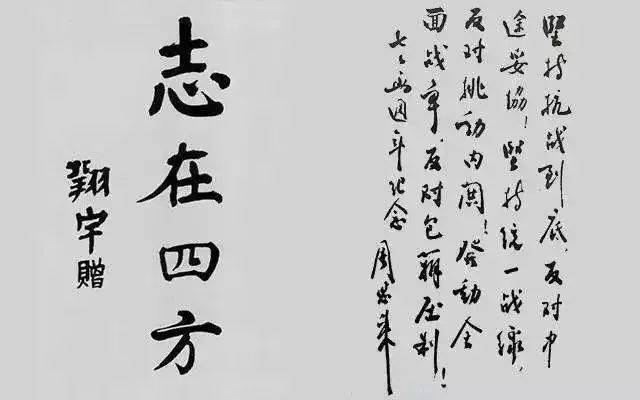 堅持抗战到底,反对中
途妥協!堅持统一战线,
反对挑动内閧!發动全
面战争,反对包辦压制!
七々两周年纪念 周恩来
志在四方
翔宇贈